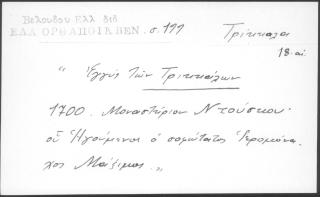 Βελούδου Ελλ διδ
ΕΛΛ ΟΡΘ ΑΠΟΙΚ ΒΕΝ. σ. 199
Τρίκκαλα
18. αι.
"Εγγύς τῶν Τρικκάλων
1700. Μοναστήριον Ντούσκου.
οὗ Ἡγούμενος ὁ σοφώτατος Ἱερομόνα
χος Μάξιμος."